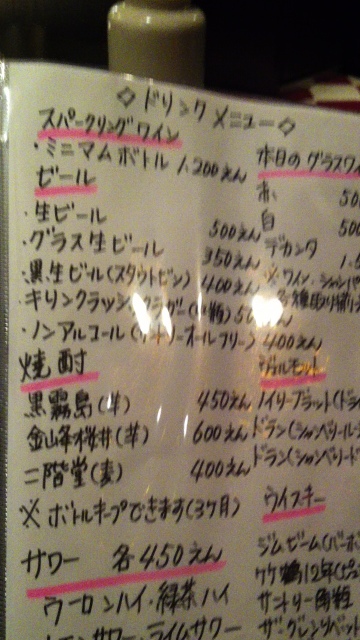 ◇ドリンクメニュー◇
スパークリングワイン
・ミニマムボトル 1.200えん
ビール
・生ビール 500えん
・グラス生ビール 350えん
・黒生ビール(スタウトビン) 400えん
・キリンクラッシックラガー(小瓶)
・ノンアルコール(サントリーオールフリー) 400えん
焼酎
黒霧島(芋) 450えん
金山峰桜井(芋) 600えん
二階堂(麦) 400えん
※ボトルキープできます(3ヶ月)
サワー 各450えん
ウーロンハイ・緑茶ハイ
レモンサワー・ライムサワー
本日のグラスワイ
赤 50
白 500
デカンタ 1.5
※ワイン・シャンパ
ノイリープラット(ドラ
ドラン(シャンベリール
ドラン(シャンベリード
ウイスキー
ジムビーム(バーボ
竹鶴12年(ピュ
サントリー角瓶
ザ・グレンリベッ